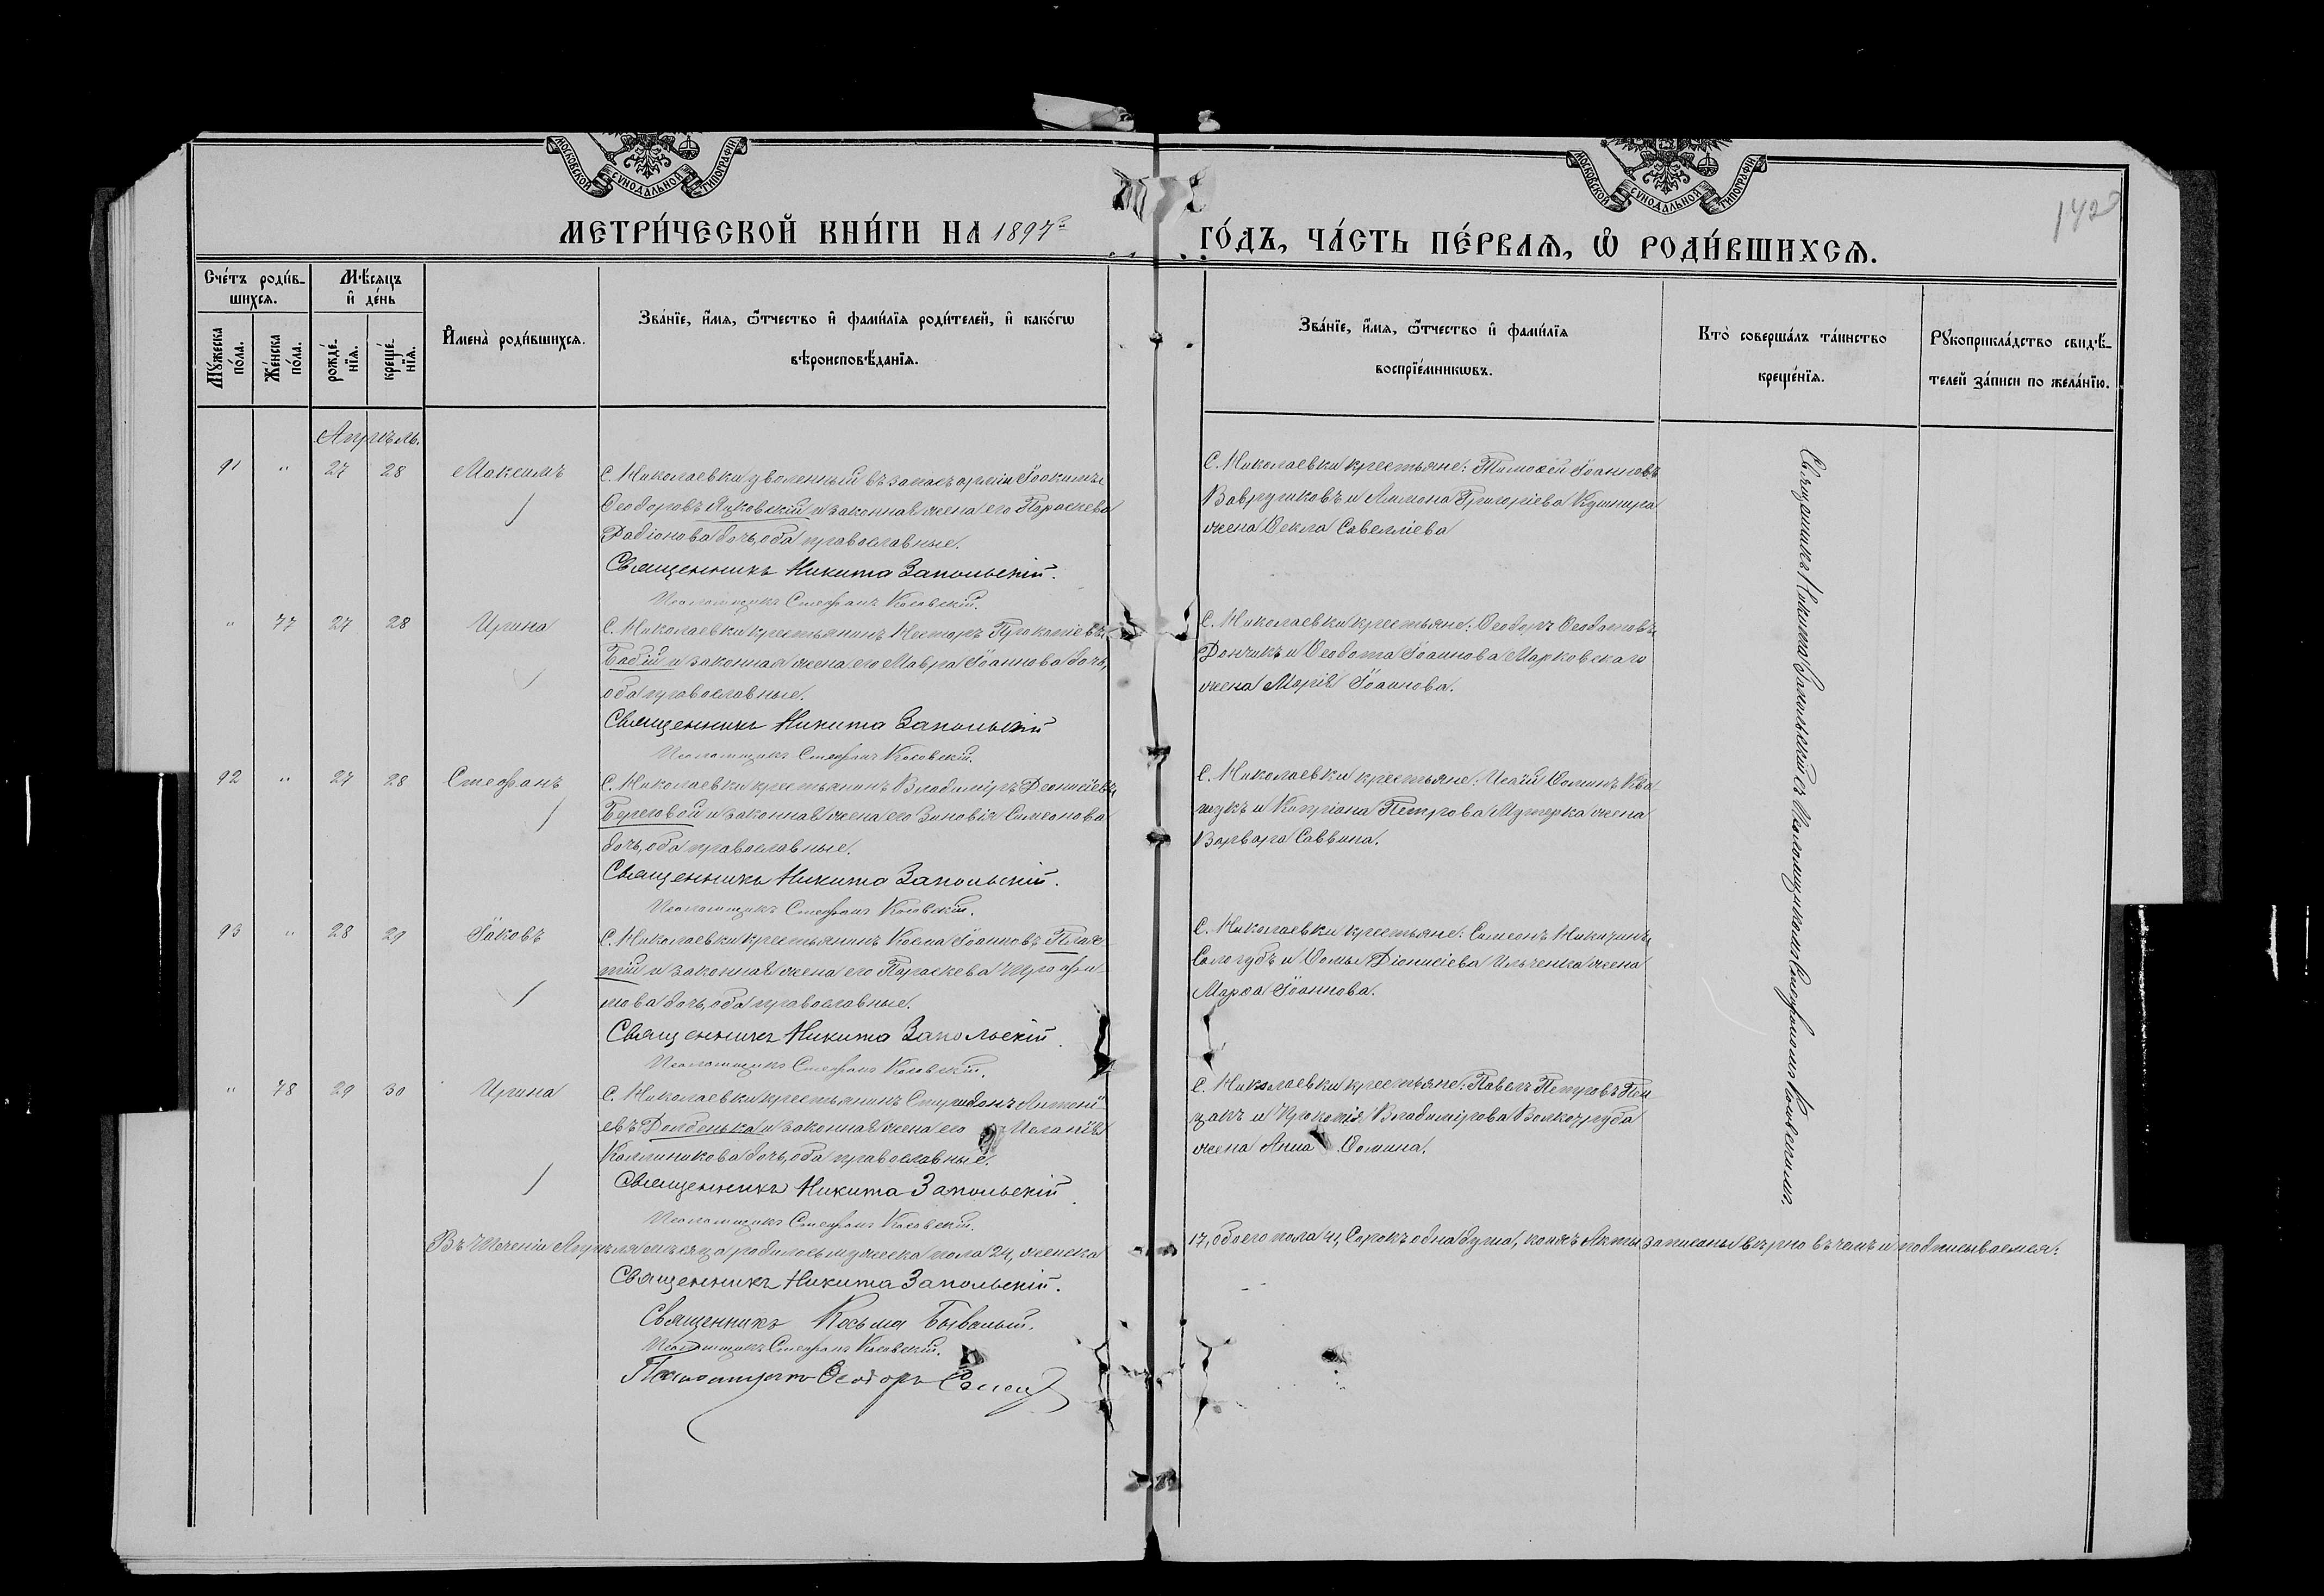 МОСКОВСКОЙ СѴНОДАЛЬНОЙ ТИПОГРАФІИ
МОСКОВСКОЙ СѴНОДАЛЬНОЙ ТИПОГРАФІИ
142
МЕТРИ́ЧЕСКОЙ КНИ́ГИ НА 1897й ГО́ДЪ, ЧА́СТЬ ПЕ́РВАѦ, Ѡ҆ РОДИ́ВШИХСѦ.
Сче́тъ роди́в-
шихсѧ.
Мѣ́сѧцъ
и҆ де́нь
Мꙋ́жеска по́ла.
Же́нска по́ла.
рожде́-
нїѧ.
креще́-
нїѧ.
И҆мена̀ роди́вшихсѧ.
Зва́нїе, и҆́мѧ, ѻ҆́тчество и҆ фами́лїѧ роди́телей, и҆ како́гѡ
вѣроисповѣ́данїѧ.
Зва́нїе, и҆́мѧ, ѻ҆́тчество и҆ фами́лїѧ
воспрїе́мникѡвъ.
Кто̀ соверша́лъ та́инство
креще́нїѧ.
Рꙋкоприкла́дство свидѣ́-
телей за́писи по жела́нїю.
Апрѣль.
91 " 27 28 Максимъ
С. Николаевки уволенный въ запасъ арміи Іоакимъ
Ѳеодоровъ Яцковскій и законная жена его Параскева
Радіонова дочь, оба православные.
Священникъ Никита Запольскій.
Псаломщикъ Стефанъ Косовскій.
С. Николаевки крестьяне: Тимоѳей Іоанновъ
Вавруликовъ и Лимона Григоріева Кушнира
жена Ѳекла Савелліева
" 77 27 28 Ирина
С. Николаевки крестьянинъ Несторъ Прокопіевъ
Бабій и законная жена его Мавра Іоаннова дочь,
оба православные.
Священникъ Никита Запольскій
Псаломщикъ Стефанъ Косовскій.
С. Николаевки крестьяне: Ѳеодоръ Ѳеодотовъ
Дончикъ и Ѳеодота Іоаннова Марковскаго
жена Марія Іоаннова.
92 " 27 28 Стефанъ
С. Николаевки крестьянинъ Владиміръ Деонисіевъ
Береговой и законная жена его Зиновія Симеонова
дочь, оба православные.
Священникъ Никита Запольскій.
Псаломщикъ Стефанъ Косовскій.
С. Николаевки крестьяне: Исаій Ѳоминъ
и Капріана Петрова жена
Варвара Саввина.
93 " 28 29 Іаковъ
С. Николаевки крестьянинъ Косма Іоанновъ Плах-
тій и законная жена его Параскева Проѳи-
мова дочь, оба православные.
Священникъ Никита Запольскій.
Псаломщикъ Стефанъ Косовскій.
С. Николаевки крестьяне: Симеонъ Никитинъ
Сологубъ и Ѳомы Діонисіева Ильченка жена
Марѳа Іоаннова.
" 78 29 30 Ирина
С. Николаевки крестьянинъ Спиридонъ Антоні-
евъ Долбенька и законная жена его Меланія
Каллиникова дочь, оба православные.
Священникъ Никита Запольскій.
Псаломщикъ Стефанъ Косовскій.
С. Николаевки крестьяне: Павелъ Петровъ
и Прокопія Владимірова Волкочуба
жена Анна Ѳомина.
Священникъ Никита Запольскій съ Псаломщикомъ Стефаномъ Косовскимъ.
Въ теченіи Апрѣля мѣсяца родилось мужеска пола 24, женска
17, обоего пола 41, Сорокъ одна душа, коихъ Акты записаны вѣрно въ чемъ и подписываемся:
Священникъ Никита Запольскій.
Священникъ Косьма Бывалый.
Псаломщикъ Стефанъ Косовскій.
Псаломщикъ Ѳеодоръ